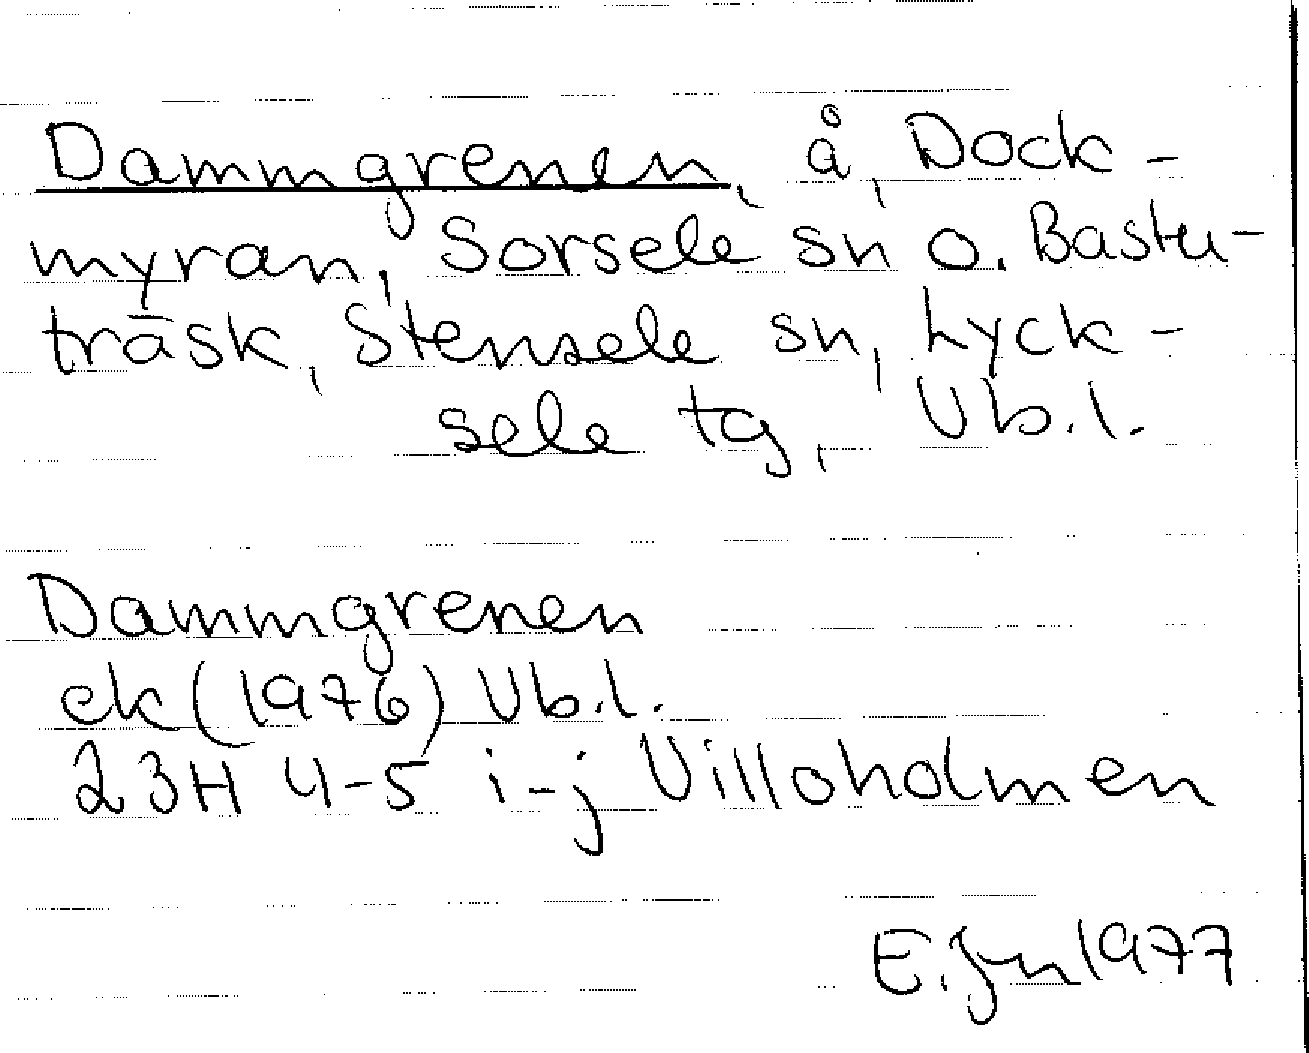 Dammgrenen, å, Dock-
myran, Sorsele sn o. Bastu-
träsk, Stensele sn, Lyck-
sele tg, Vb.l.
Dammgrenen
ek (1976) Vb.l.
23H 4-5 i-j Villoholmen
E.Jn 1977